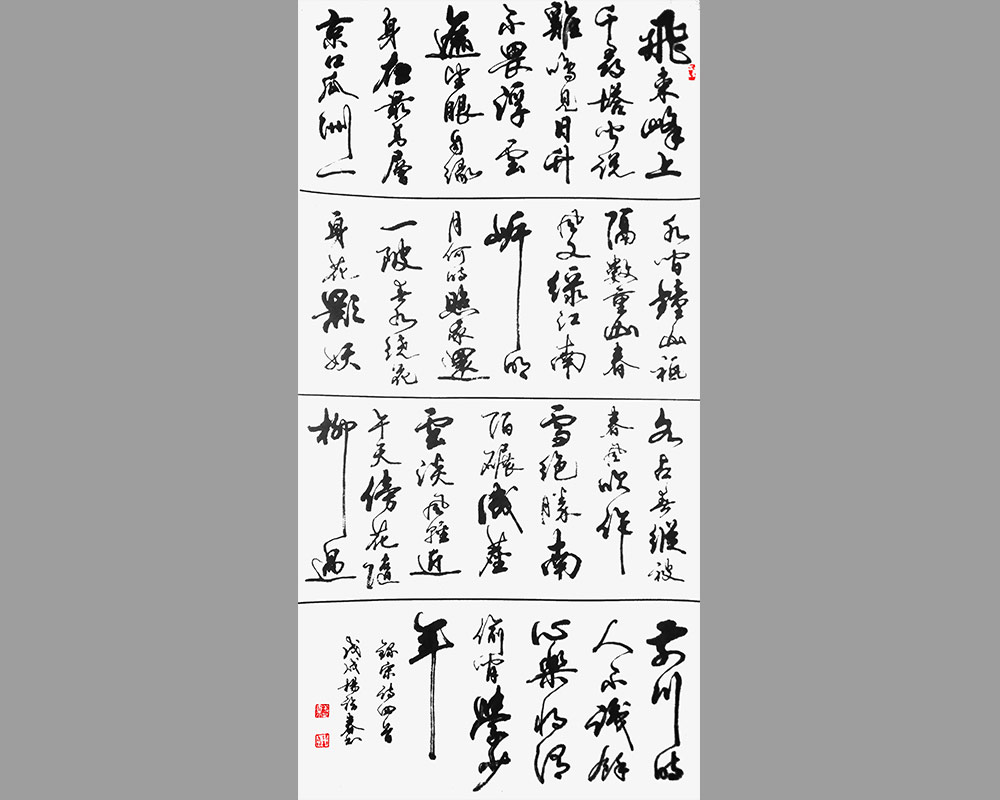 飛來峰上
千尋塔聞說
雞鳴見日升
不畏浮雲
遮望眼自緣
身在最高層
京口瓜洲一
水間鐘山祗
隔數重山春
風又綠江南
岸明
月何時照我還
一陂春水繞花
身花影妖
各占春縱被
春風吹作
雪絕勝南
陌碾成塵
雲淡風輕近
午天傍花隨
柳過
前川時
人不識餘
心樂將謂
偷閒學少
年
錄宋詩四首
戊戌楊春書